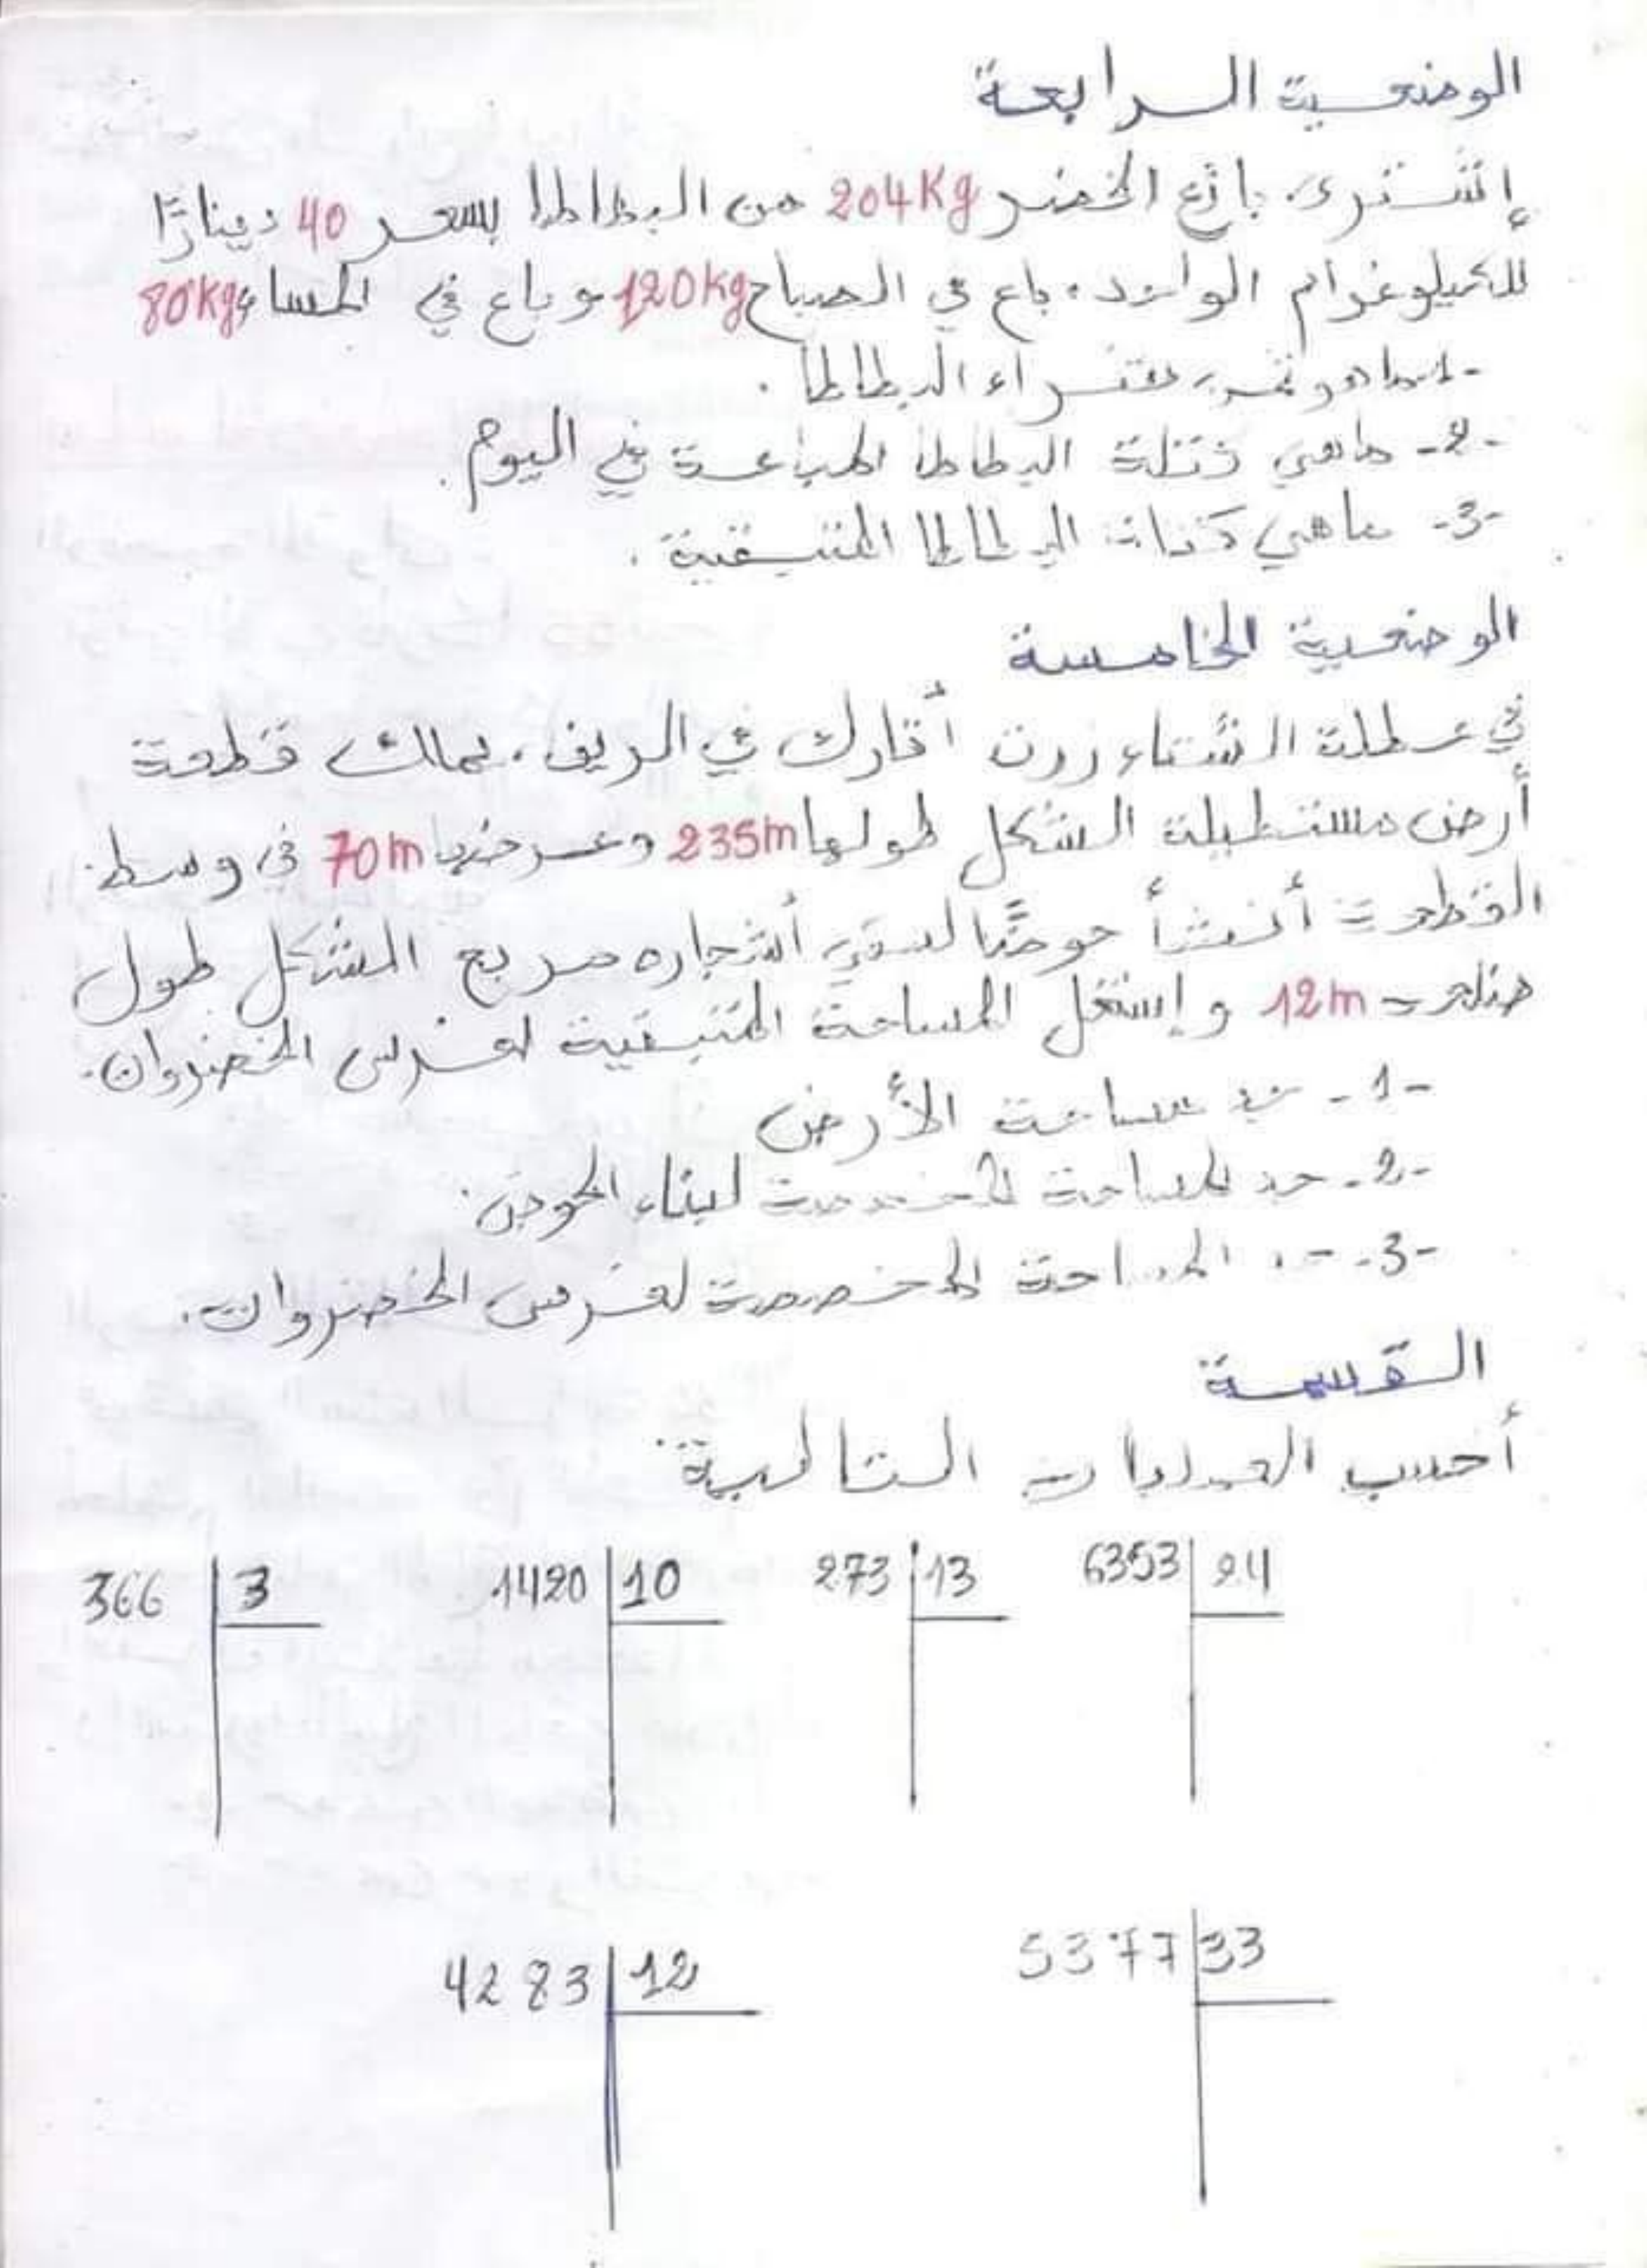 الوضعية الرابعة
إشترى بائع الخضر 204Kg من البطاطا بسعر 40 دينارًا
للكيلوغرام الواحد، باع في الصباح 120kg وباع في المساء 80kg،
-1- ماهو ثمن شراء البطاطا.
-2- ماهي كتلة البطاطا المباعة في اليوم.
-3- ماهي كتلة البطاطا المتبقية.
الوضعية الخامسة
في عطلة الشتاء زرت أقارك في الريف، يملك قطعة
أرض مستطيلة الشكل طولها 235m وعرضها 70m في وسط
القطعة أنشأ حوضًا لسقي أشجاره مربع الشكل طول
ضلعه 12m وإستغل المساحة المتبقية لغرس الخضروات.
-1- مساحة الأرض
-2- جد المساحة المخصصة لبناء الحوض.
-3- المساحة المخصصة لغرس الخضروات.
القسمة
أحسب العمليات التالية:
366 3 1420 10 273 13 6353 24
4283 12 5377 33